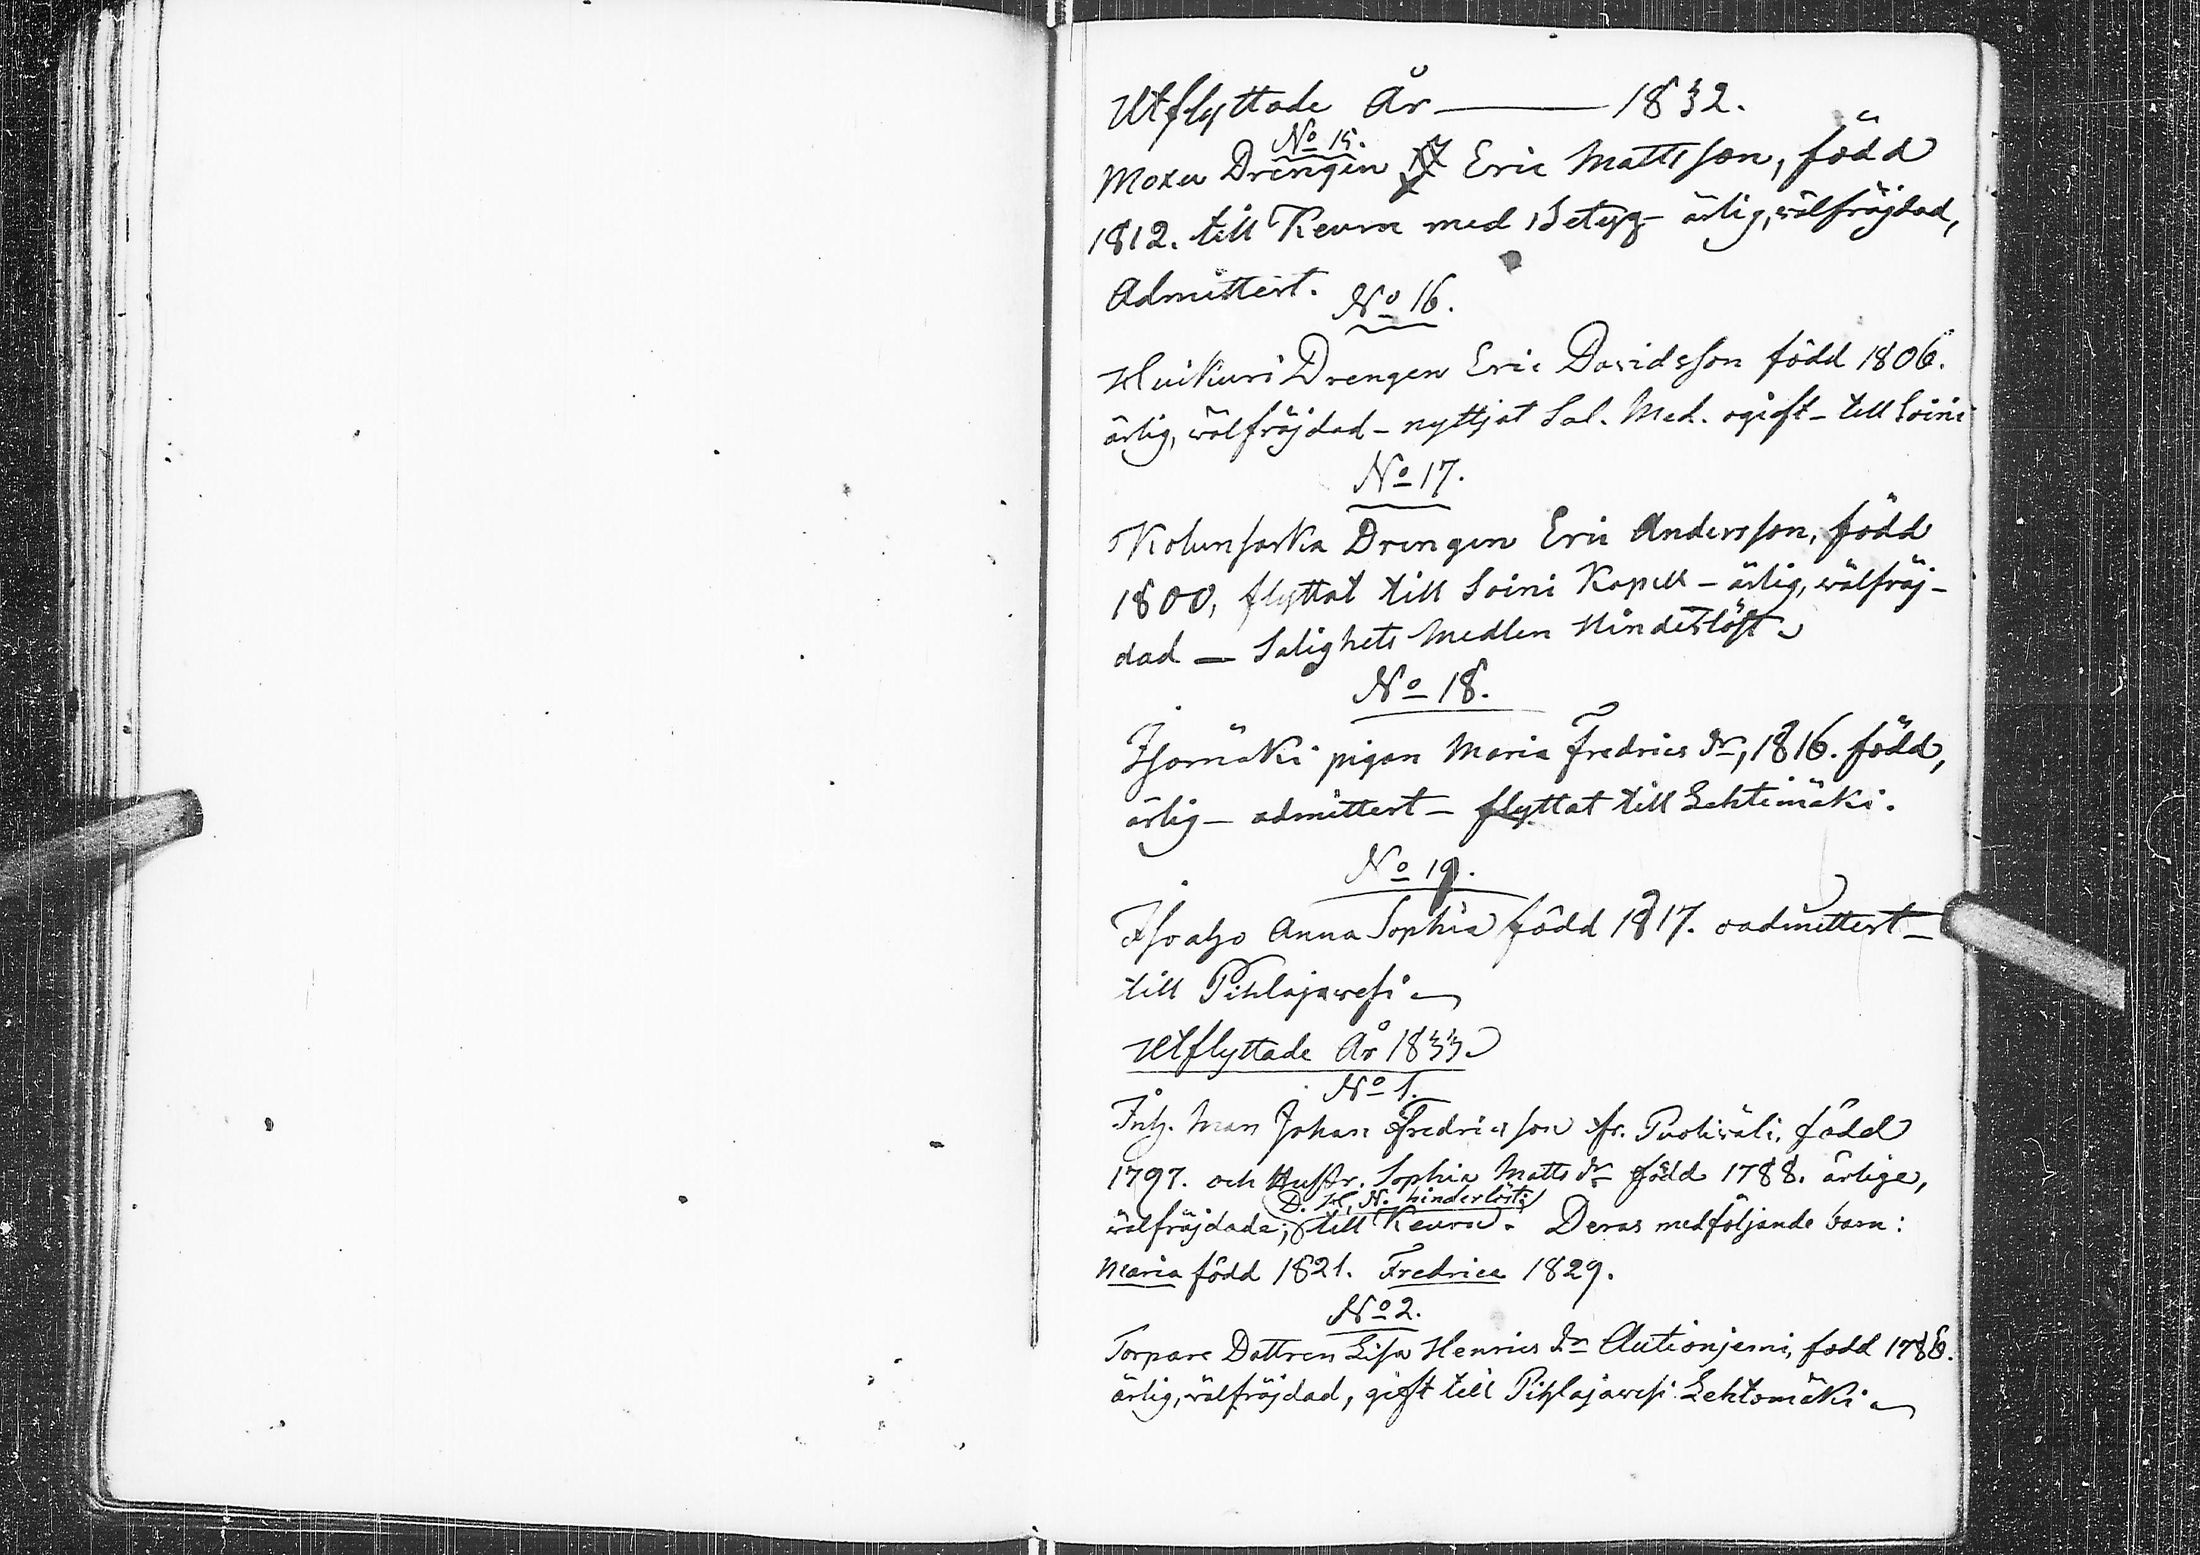 Utflyttade År — 1832.
No 15.
Moxu Drengen Eric Mattsson, född
1812. till Keuru med Betyg - ärlig, wälfräjdad,
Admittert.
No 16.
Huikuri Drengen Eric Davidsson född 1806.
ärlig, wälfräjdad - nyttjat Sal. Med. ogift - till Soini
No 17.
Kolunsarka Drengen Eric Andersson, född
1800, flyttat till Soini Kapell - ärlig, wälfräj-
dad — Salighets Medlen Hinderlöst
No 18.
Isomäki pigan Maria Fredrics dr, 1816. född,
ärlig - admittert - flyttat till Lehtimäki.
No 19.
Isoaho Anna Sophia född 1817. oadmittert -
till Pihlajawesi
Utflyttade År 1833
No 1.
Inh. Man Johan Fredricsson fr. Puoliväli, född
1797. och Hustr. Sophia Matts dr född 1788. ärlige,
D. H. N. hinderlöst
wälfräjdade; till Keuru. Deras medföljande barn:
Maria född 1821. Fredrica 1829.
No 2.
Torpare Dottren Lisa Henrics dr Autionjemi, född 1786.
ärlig, wälfräjdad, gift till Pihlajawesi Lehtomäki